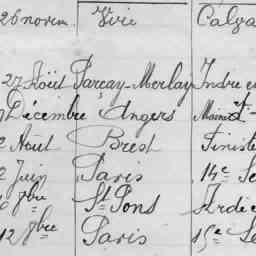 26 novem. Vire Calva
27 Août Parcay-Merlay Indre e
Décembre Angers Maine et
2 Août Brest Finiste
2 Juin Paris 14e Se
6 7bre St Pons Ardè
12 7bre Paris 15e Se